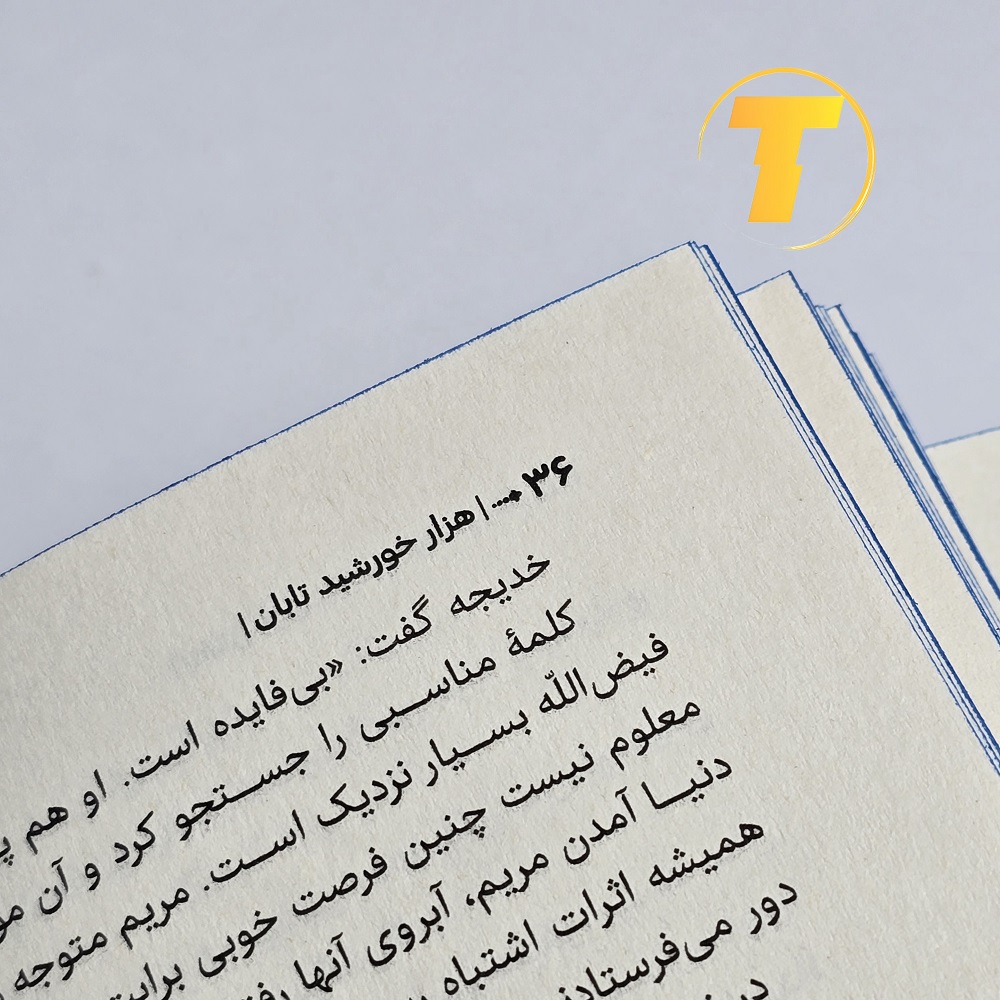 T
۳۶ | هزار خورشید تابان |
خدیجه گفت: «بی‌فایده است. او هم
کلمهٔ مناسبی را جستجو کرد و آن
فیض‌الله بسیار نزدیک است. مریم متوجه
معلوم نیست چنین فرصت خوبی
دنیا آمدن مریم، آبروی آنها
همیشه اثرات اشتباه
دور می‌فرستادند